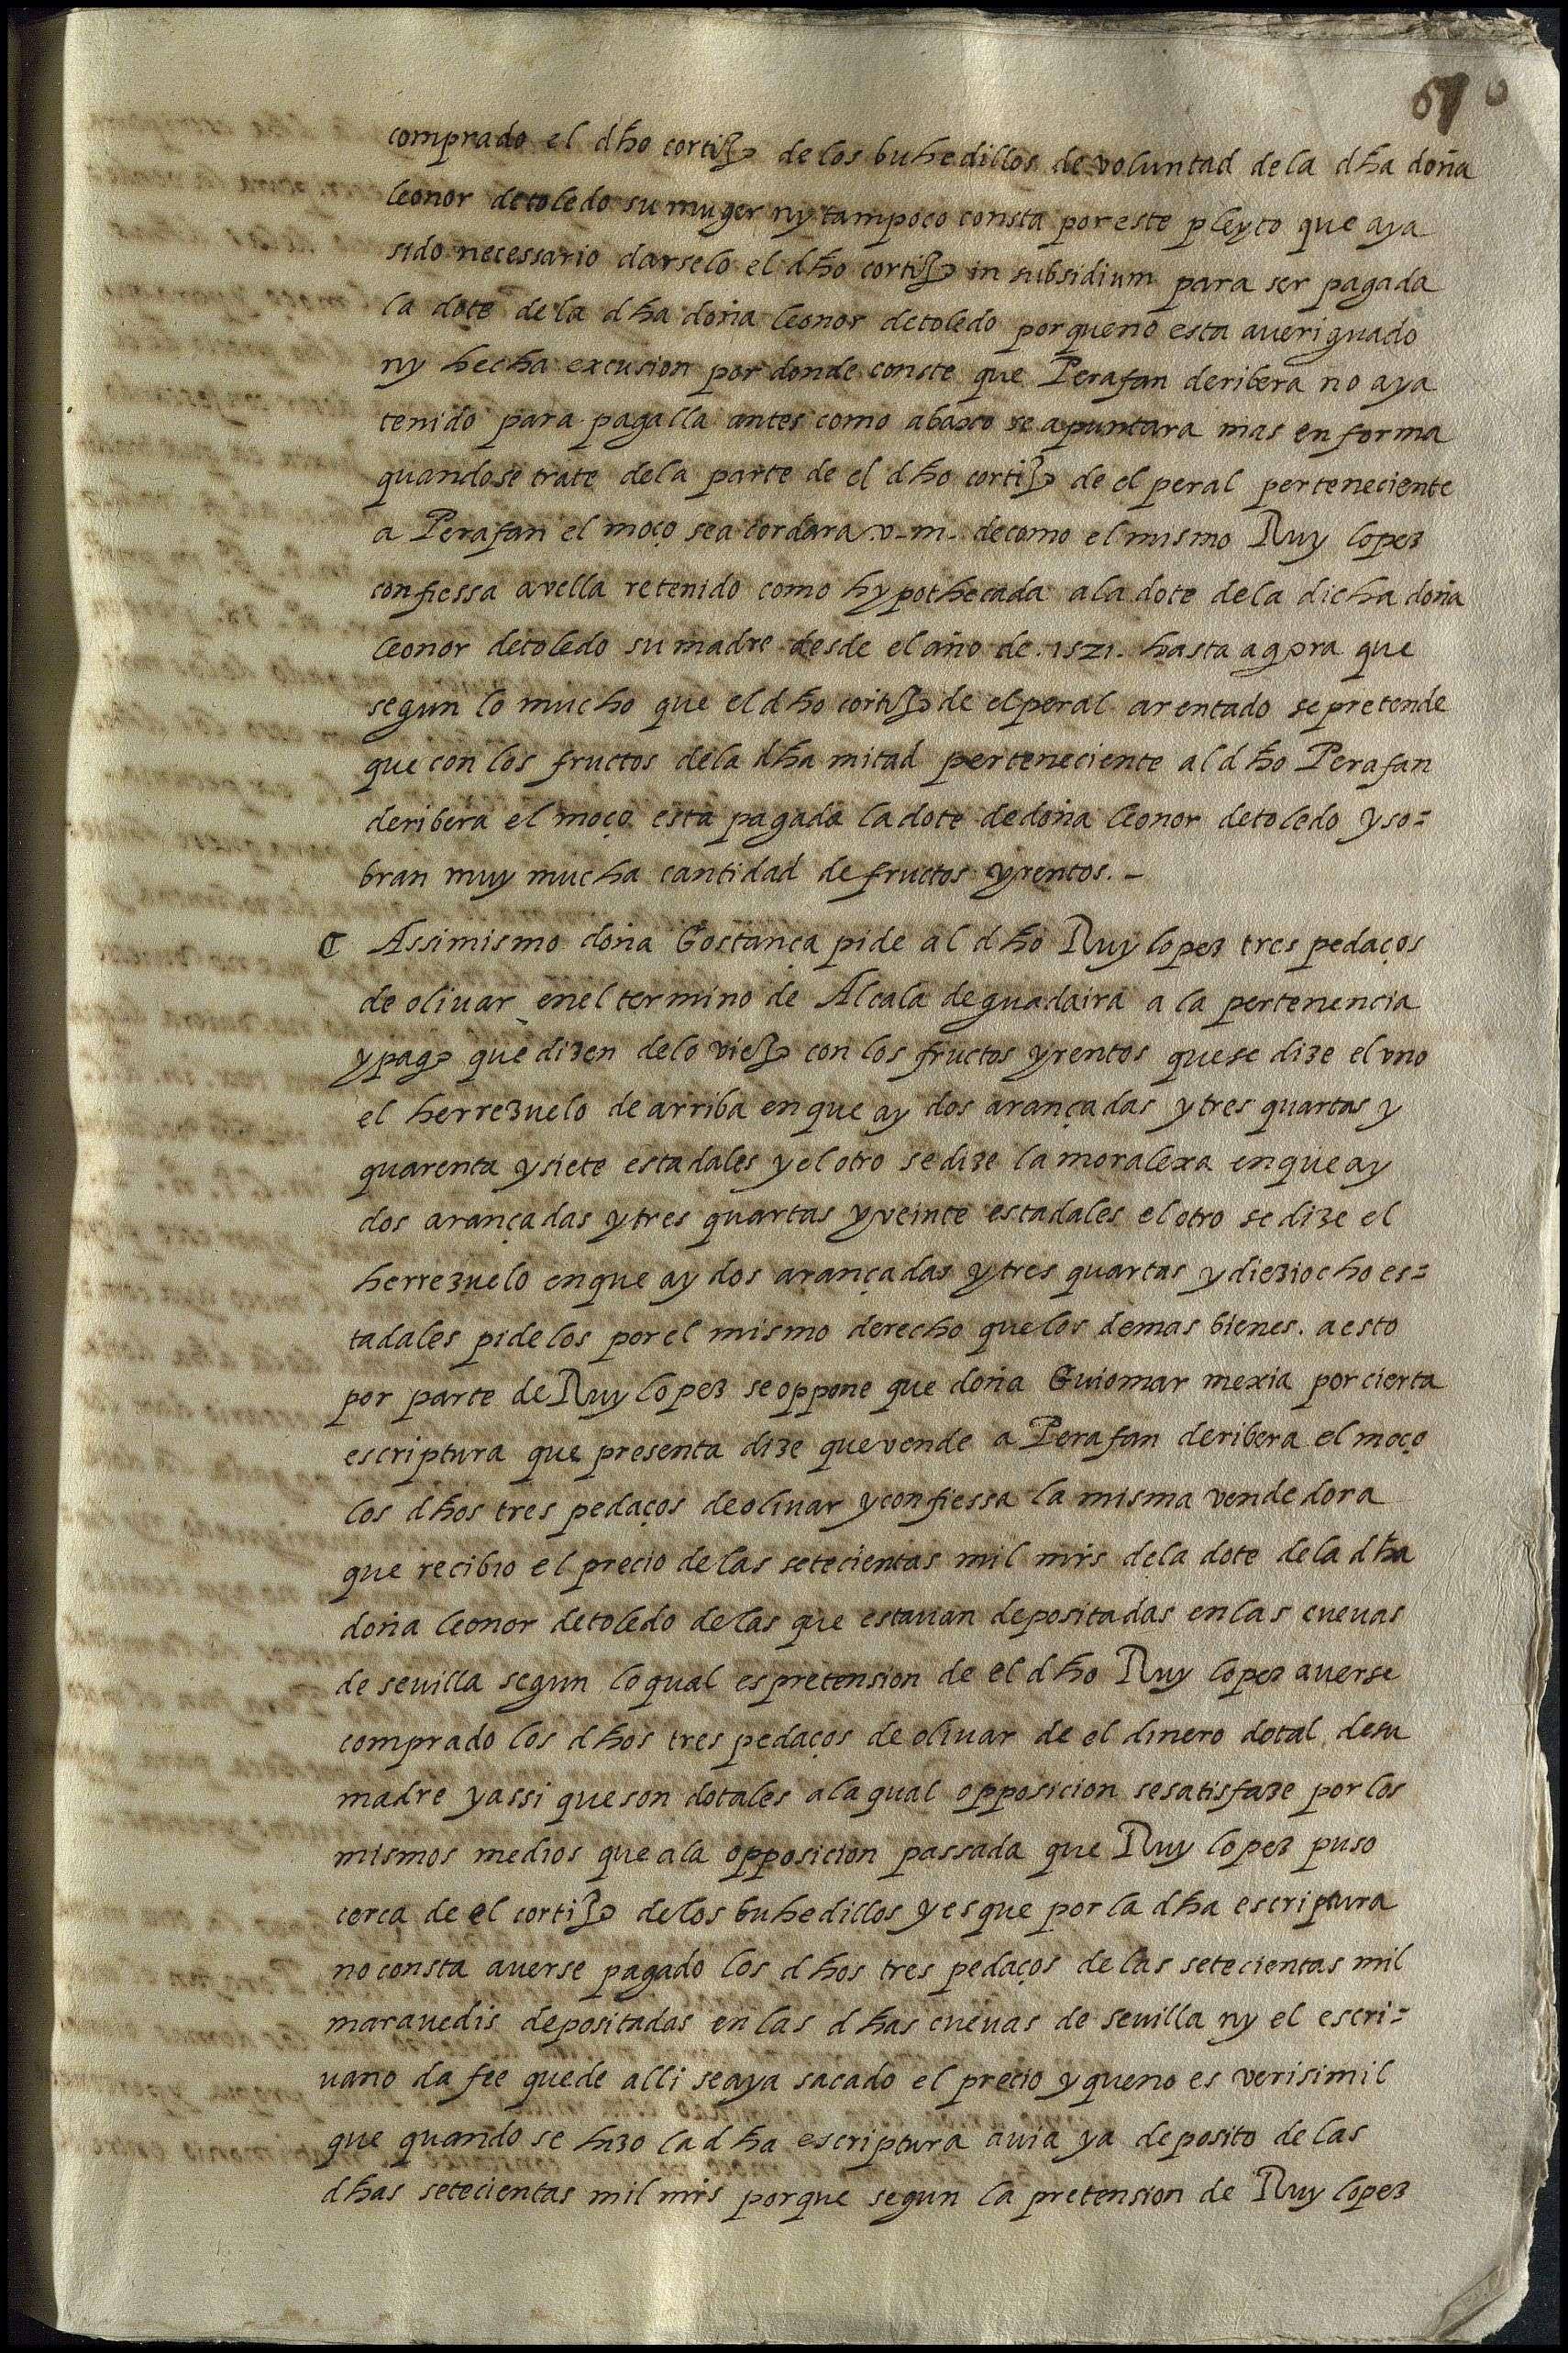 comprado el dho cortijo de los buhedillos de voluntad de la dha doña
leonor de toledo su muger ny tampoco consta por este pleyto que aya
sido necessario darselo el dho cortijo in subsidium para ser pagada
la dote de la dha doña leonor de toledo porque no esta aueriguado
ny hecha excusion por donde conste que Perafan de ribera no aya
tenido para pagalla antes como abaxo se apuntara mas en forma
quando se trate de la parte de el dho cortijo de el peral perteneciente
a Perafan el moço se acordara .v.m. de como el mismo Ruy lopez
confiessa avella retenido como hypothecada a la dote de la dicha doña
leonor de toledo su madre desde el año de .1521. hasta agora que
segun lo mucho que el dho cortijo de el peral a rentado se pretende
que con los fructos de la dha mitad perteneciente al dho Perafan
de ribera el moço esta pagada la dote de doña leonor de toledo y so=
bran muy mucha cantidad de fructos y rentos. -
C Assimismo doña Costança pide al dho Ruy lopez tres pedaços
de oliuar en el termino de Alcala de guadaira a la pertenencia
y pago que dizen de lo viejo con los fructos y rentos que se dize el vno
el herrezuelo de arriba en que ay dos arançadas y tres quartas y
quarenta y siete estadales y el otro se dize la moralexa en que ay
dos arançadas y tres quartas y veinte estadales el otro se dize el
herrezuelo en que ay dos arançadas y tres quartas y dieziocho es=
tadales pide los por el mismo derecho que los demas bienes. a esto
por parte de Ruy lopez se oppone que doña Guiomar mexia por cierta
escriptura que presenta dize que vende a Perafan de ribera el moço
los dhos tres pedaços de oliuar y confiessa la misma vendedora
que recibio el precio de las setecientas mil mrs de la dote de la dha
doña leonor de toledo de las que estauan depositadas en las cueuas
de seuilla segun lo qual es pretension de el dho Ruy lopez auerse
comprado los dhos tres pedaços de oliuar de el dinero dotal de su
madre y assi que son dotales a la qual opposicion se satisfaze por los
mismos medios que a la opposicion passada que Ruy lopez puso
cerca de el cortijo de los buhedillos y es que por la dha escriptura
no consta auerse pagado los dhos tres pedaços de las setecientas mil
marauedis depositadas en las dhas cueuas de seuilla ny el escri=
uano da fee que de alli se aya sacado el precio y que no es verisimil
que quando se hizo la dha escriptura auia ya deposito de las
dhas setecientas mil mrs porque segun la pretension de Ruy lopez